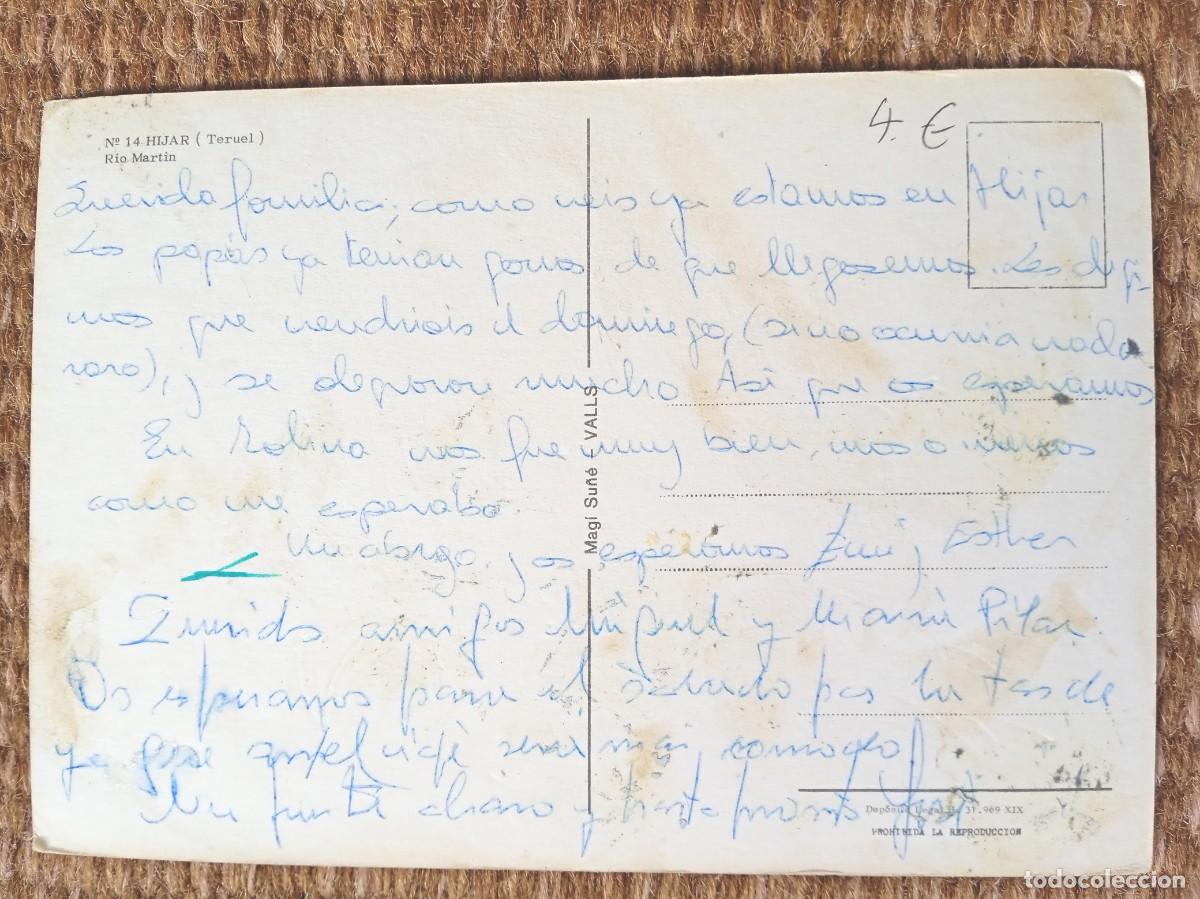 4 €
Nº 14 HIJAR ( Teruel )
Rio Martin
Querida familia, como veis ya estamos en Hijar
Los papás ya tenian ganas de que llegasemos. Les digi-
mos que vendriais el domingo, (si no ocurria nada
raro), y se alegraron mucho. Asi que os esperamos
En Molina nos fue muy bien, mas o menos
como me esperaba.
Un abrazo, y os esperamos Esther
Magí Suñé - VALLS
Queridos amigos Miguel y Maria Pilar.
Os esperamos para el Sabado por la tarde
ya que será mas comodo
Un fuerte abrazo y hasta pronto
Depósito Legal B. 31.969 XIX
PROHIBIDA LA REPRODUCCION
todocoleccion